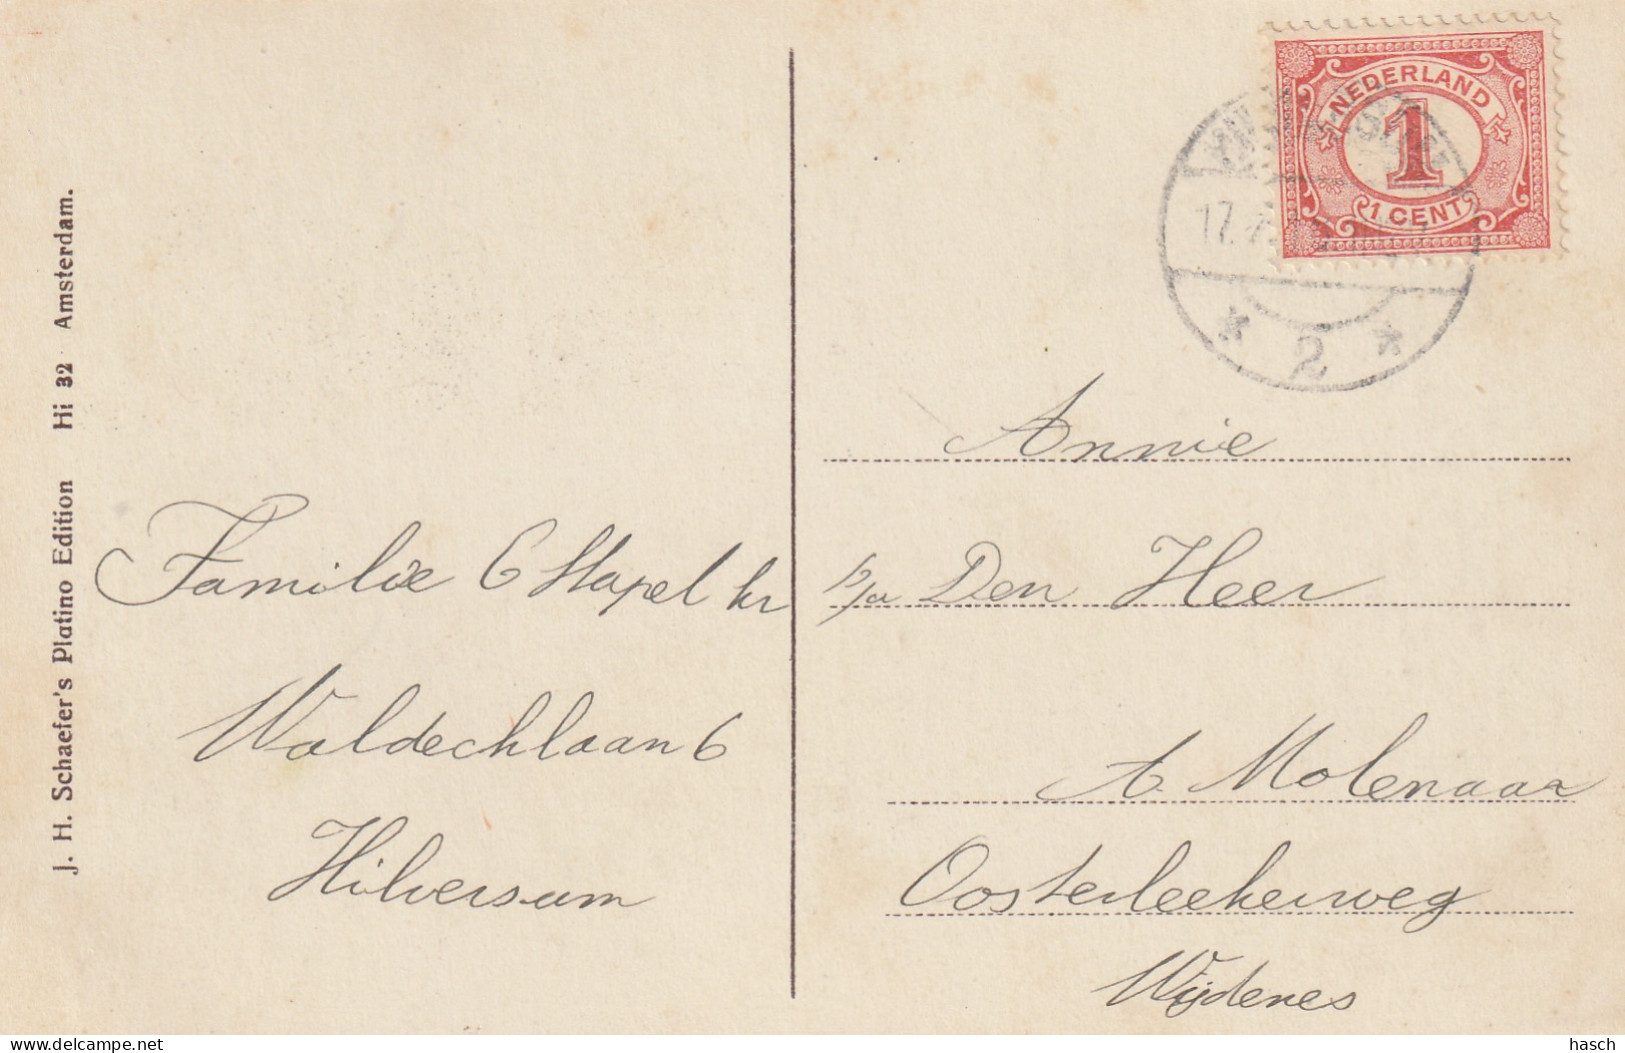 J. H. Schaefer's Platino Edition Hi 32 Amsterdam.
NEDERLAND
1
1 CENT
17.
* 2 *
Familie C Stapel kr
Waldechlaan 6
Hilversum
Annie
p/a Den Heer
A. Molenaar
Oosterleekerweg
Wijdenes
delcampe.net
hasch